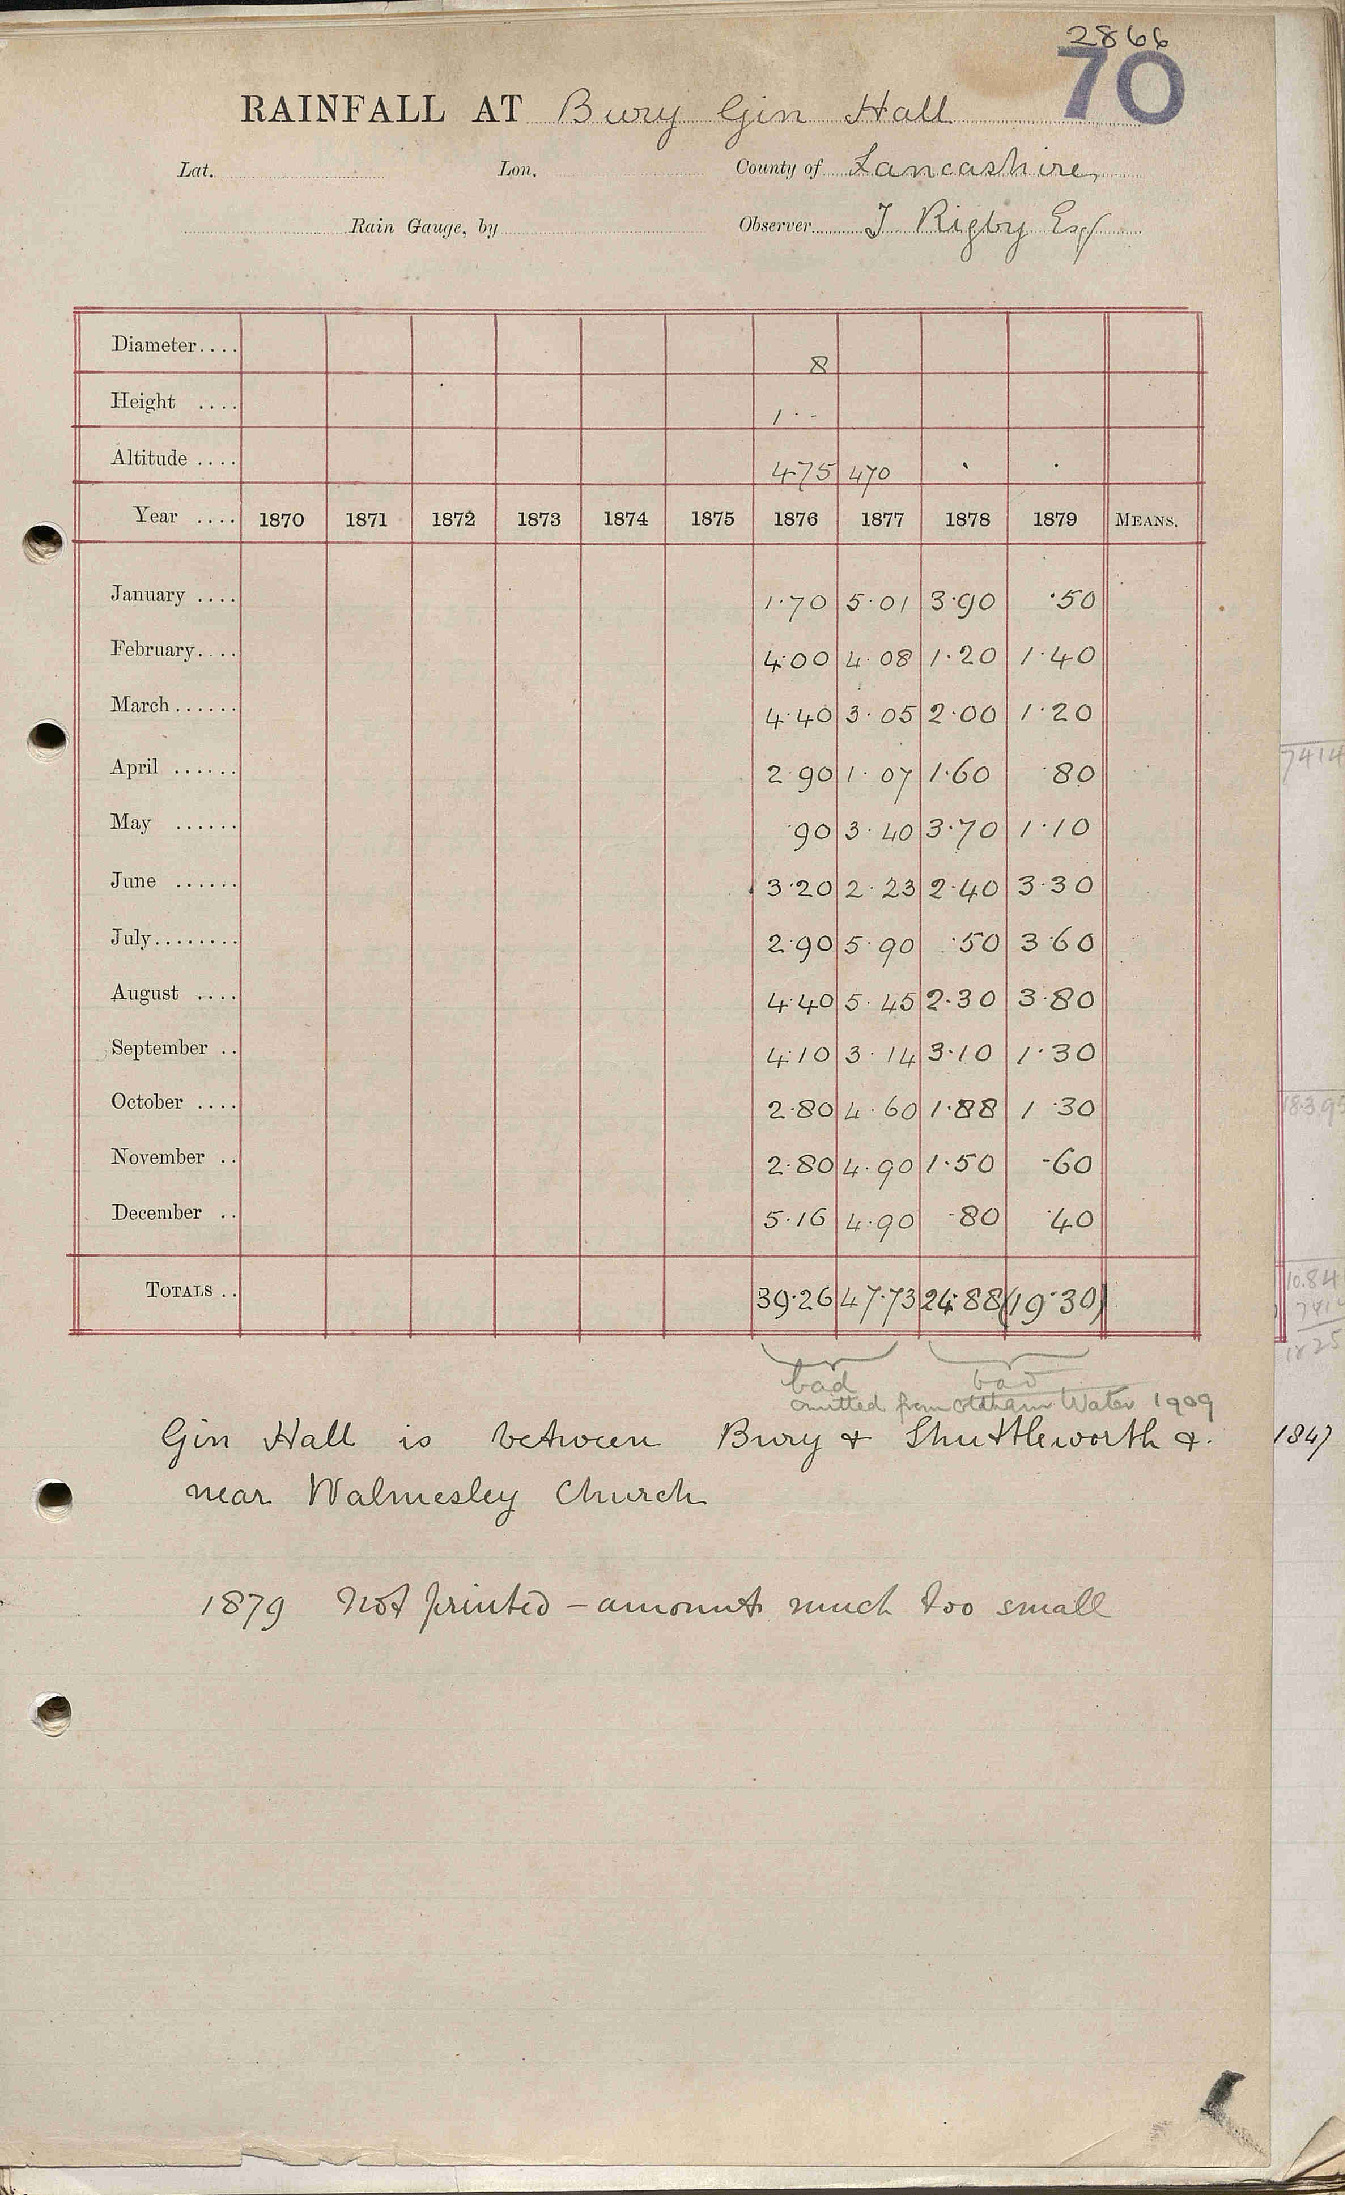 2866
70
RAINFALL AT Bury Gin Hall
Lat. Lon. County of Lancashire
Rain Gauge, by Observer J Rigby Esq
Diameter.... 8
Height .... 1 · -
Altitude .... 475 470 · ·
Year .... 1870 1871 1872 1873 1874 1875 1876 1877 1878 1879 MEANS.
January .... 1·70 5·01 3·90 ·50
February.... 4·00 4·08 1·20 1·40
March ...... 4·40 3·05 2·00 1·20
April ...... 2·90 1·07 1·60 ·80
May ...... ·90 3·40 3·70 1·10
June ...... 3·20 2·23 2·40 3·30
July........ 2·90 5·90 ·50 3·60
August .... 4·40 5·45 2·30 3·80
September .. 4·10 3·14 3·10 1·30
October .... 2·80 4·60 1·88 1·30
November .. 2·80 4·90 1·50 ·60
December .. 5·16 4·90 ·80 ·40
TOTALS .. 39·26 47·73 24·88 (19·30)
bad bad
omitted from Oldham Water 1909
Gin Hall is between Bury & Shuttleworth &
near Walmesley Church
1879 Not printed – amount much too small
7414
183.95
10.84
1847